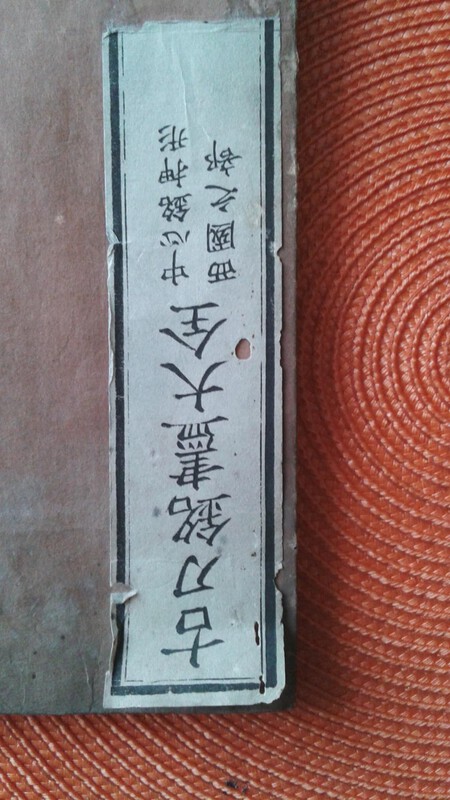 古刀銘盡大全
中心銘押形
西國之部